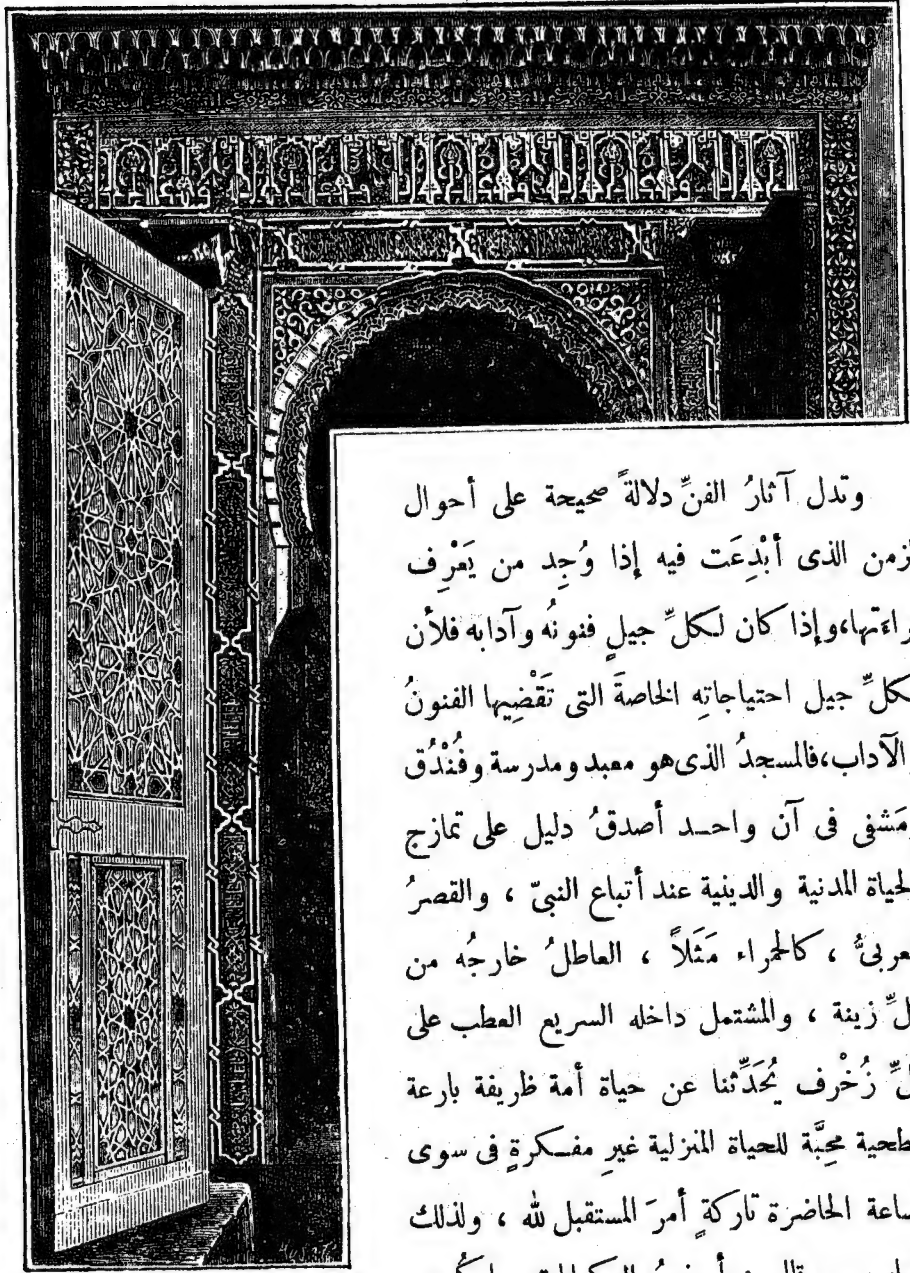 وتدل آثارُ الفنِّ دلالةً صحيحة على أحوال
الذى أُبْدِعَت فيه إذا وُجِد من يَعْرِف
وإذا كان لكلِّ جيلٍ فنونُه وآدابه فلأن
جيل احتياجاتِه الخاصةَ التى تَقْضِيها الفنونُ
الآداب،فالمسجدُ الذى هو معبد ومدرسة وفُنْدُق
مَشفى فى آن واحد أصدقُ دليل على تمازج
لحياة المدنية والدينية عند أتباع النبيّ ، والقصرُ
لعربىُّ ، كالحمراء مَثَلاً ، العاطلُ خارجُه من
زينة ، والمشتمل داخله السريع العطب على
زُخْرف يُحَدِّثنا عن حياة أمة ظريفة بارعة
طحية محِبَّة للحياة المنزلية غيرِ مفكرةٍ فى سوى
ساعة الحاضرة تاركةٍ أمرَ المستقبل لله ، ولذلك